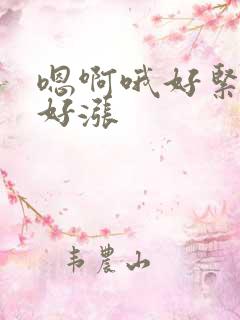 嗯啊哦好紧
好涨
韦农山